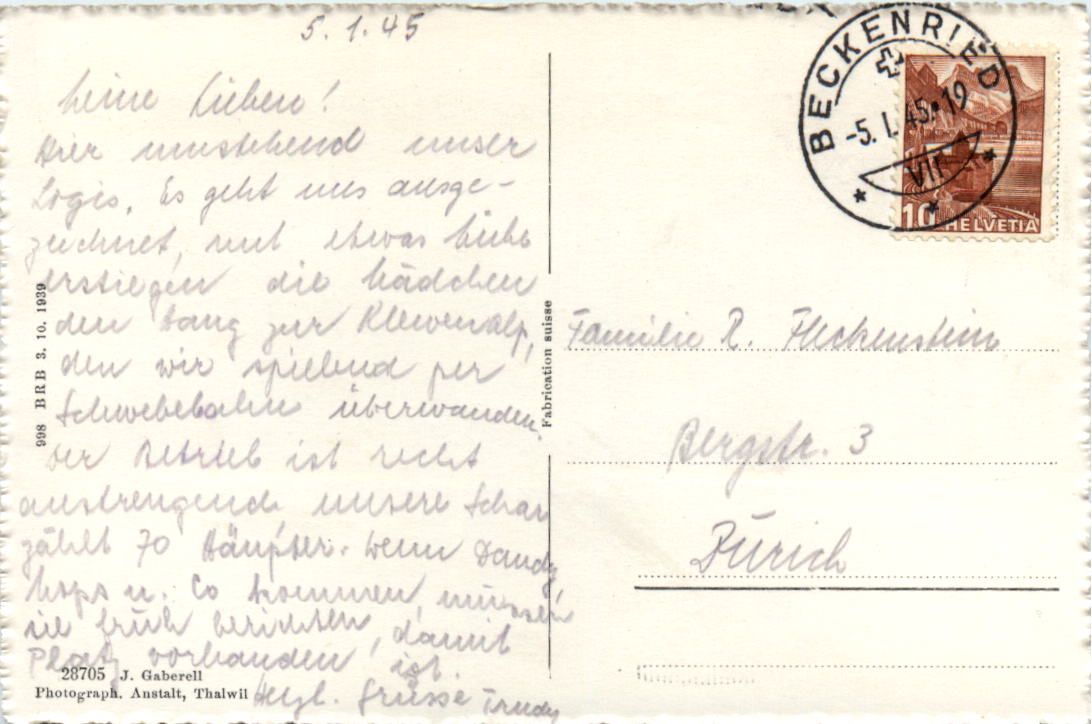 5. 1. 45
Meine Lieben!
Hier umstehend unser
Logis. Es geht uns ausge-
zeichnet, mit etwas Mühe
erstiegen die Mädchen
den Hang zur Klewenalp,
den wir spielend per
Schwebebahn überwanden.
Der Betrieb ist recht
anstrengend unsere Schar
zählt 70 Häupter. Wenn
u. Co kommen, müssen
sie früh berichten, damit
Platz vorhanden ist.
Herzl. Grüsse Trudy
28705 J. Gaberell
Photograph. Anstalt, Thalwil
998 BRB 3. 10. 1939
Fabrication suisse
BECKENRIED
-5. I. 45.-19
VII
10 HELVETIA
Familie R. Fleckenstein
Bergstr. 3
Zürich